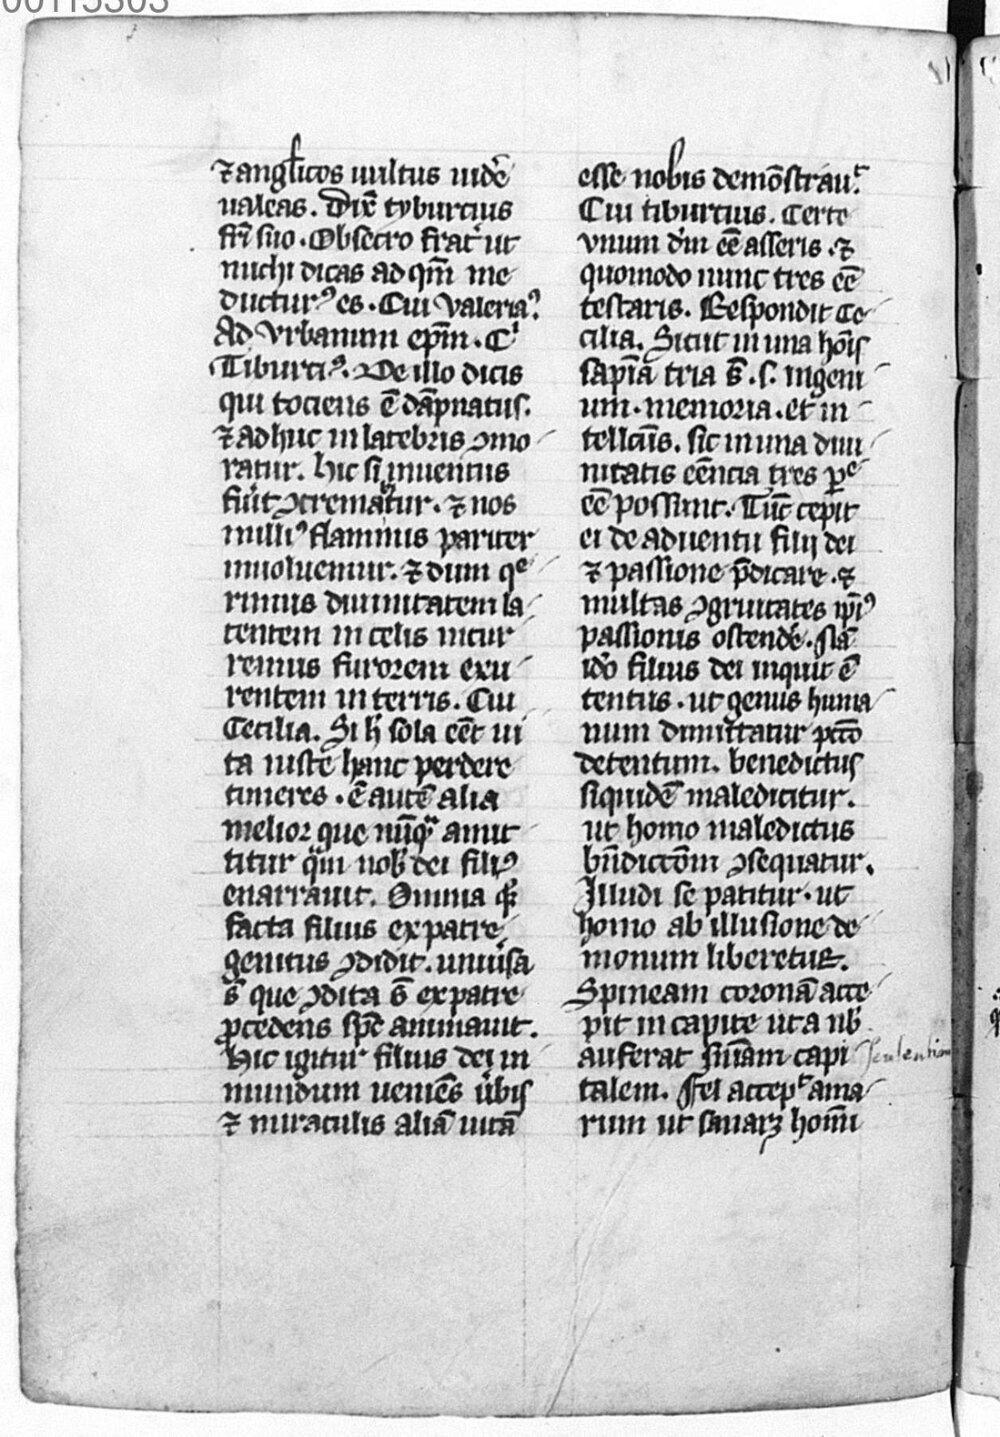 00115303
⁊ anglicos uultus uidē
ualeas. Dix̄ tyburcius
fr̄i suo. Obsecro frat̉ ut
michi dicas ad qm̄ me
ducturꝰ es. Cui Valeriaꝰ.
Ad Vrbanum ep̄m. Cͥ
Tiburciꝰ. De illo dicis
qui tociens ē dāpnatus.
⁊ adhuc in latebris ꝯmo
ratur. hic si inuentus
fu̾it ꝯcremabitur. ⁊ nos
milliꝰ flammis pariter
inuoluemur. ⁊ dum qͤ
rimus diuinitatem la
tentem in celis incur
remus furorem exu
rentem in terris. Cui
Cecilia. Si h̄ sola eēt ui
ta iuste hanc perdere
timeres. ē autē alia
melior que nūqͣ amit
titur qͣm nob̄ dei filiꝰ
enarrauit. Omnia q̄
facta filius ex patre
genitus ꝯdidit. uniu̾sa
s̄ que ꝯdita s̄ ex patre
ꝓcedens sp̄c animauit.
Hic igitur filius dei in
mundum ueniēs u̾bis
⁊ miraculis aliā uitā
esse nobis demōstrauͭ.
Cui tiburcius. Certe
vnum dm̄ eē asseris. ⁊
quomodo nunc tres eē
testaris. Respondit Ce
cilia. Sicut in una hoīs
sapīa tria s̄ .s. ingeni
um. memoria. et in
tellectus. sic in una diui
nitatis eēncia tres ꝑͤ
eē possunt. Tūc cepit
ei de aduentu filij dei
⁊ passione p̄dicare. ⁊
multas ꝯgruitates ip̄iꝰ
passionis ostendē.
idō filius dei inquit ē
tentus. ut genus huma
num dimittatur pctō
detentum. benedictus
siquidē maledicitur.
ut homo maledictus
bn̄dictōm ꝯsequatur.
Illudi se patitur. ut
homo ab illusione de
monum liberetur.
Spineam coronā acce
pit in capite ut a nob̄
auferat sn̄iam capi sententiam
talem. Fel accepͭ ama
rum ut sanarꝫ homi